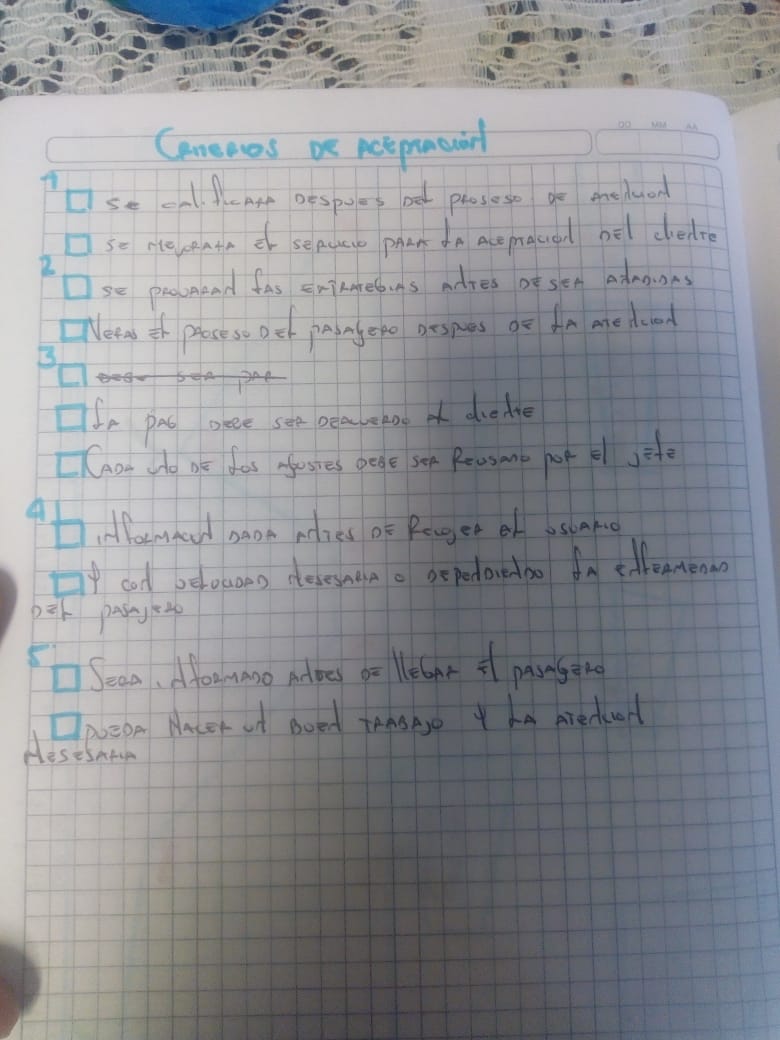 DD MM AA
CRITERIOS DE ACEPTACIÓN
1
se calificara DESPUES DEL PROSESO DE atencion
se mejorara el servicio para la aceptacion del cliente
2
se provaran las extrategias antes de ser añadidas
Veras el proseso del pasagero despues de la atencion
3
ser par
la pag debe ser deacuerdo al cliente
Cada uno de los ajustes debe ser Revisado por el jefe
4
informacion dada antes de Recoger al usuario
Y con velocidad nesesaria o dependiendo la enfermedad
del pasajero
5
Sera informado antes de llegar el pasagero
pueda hacer un buen trabajo y la atencion
nesesaria